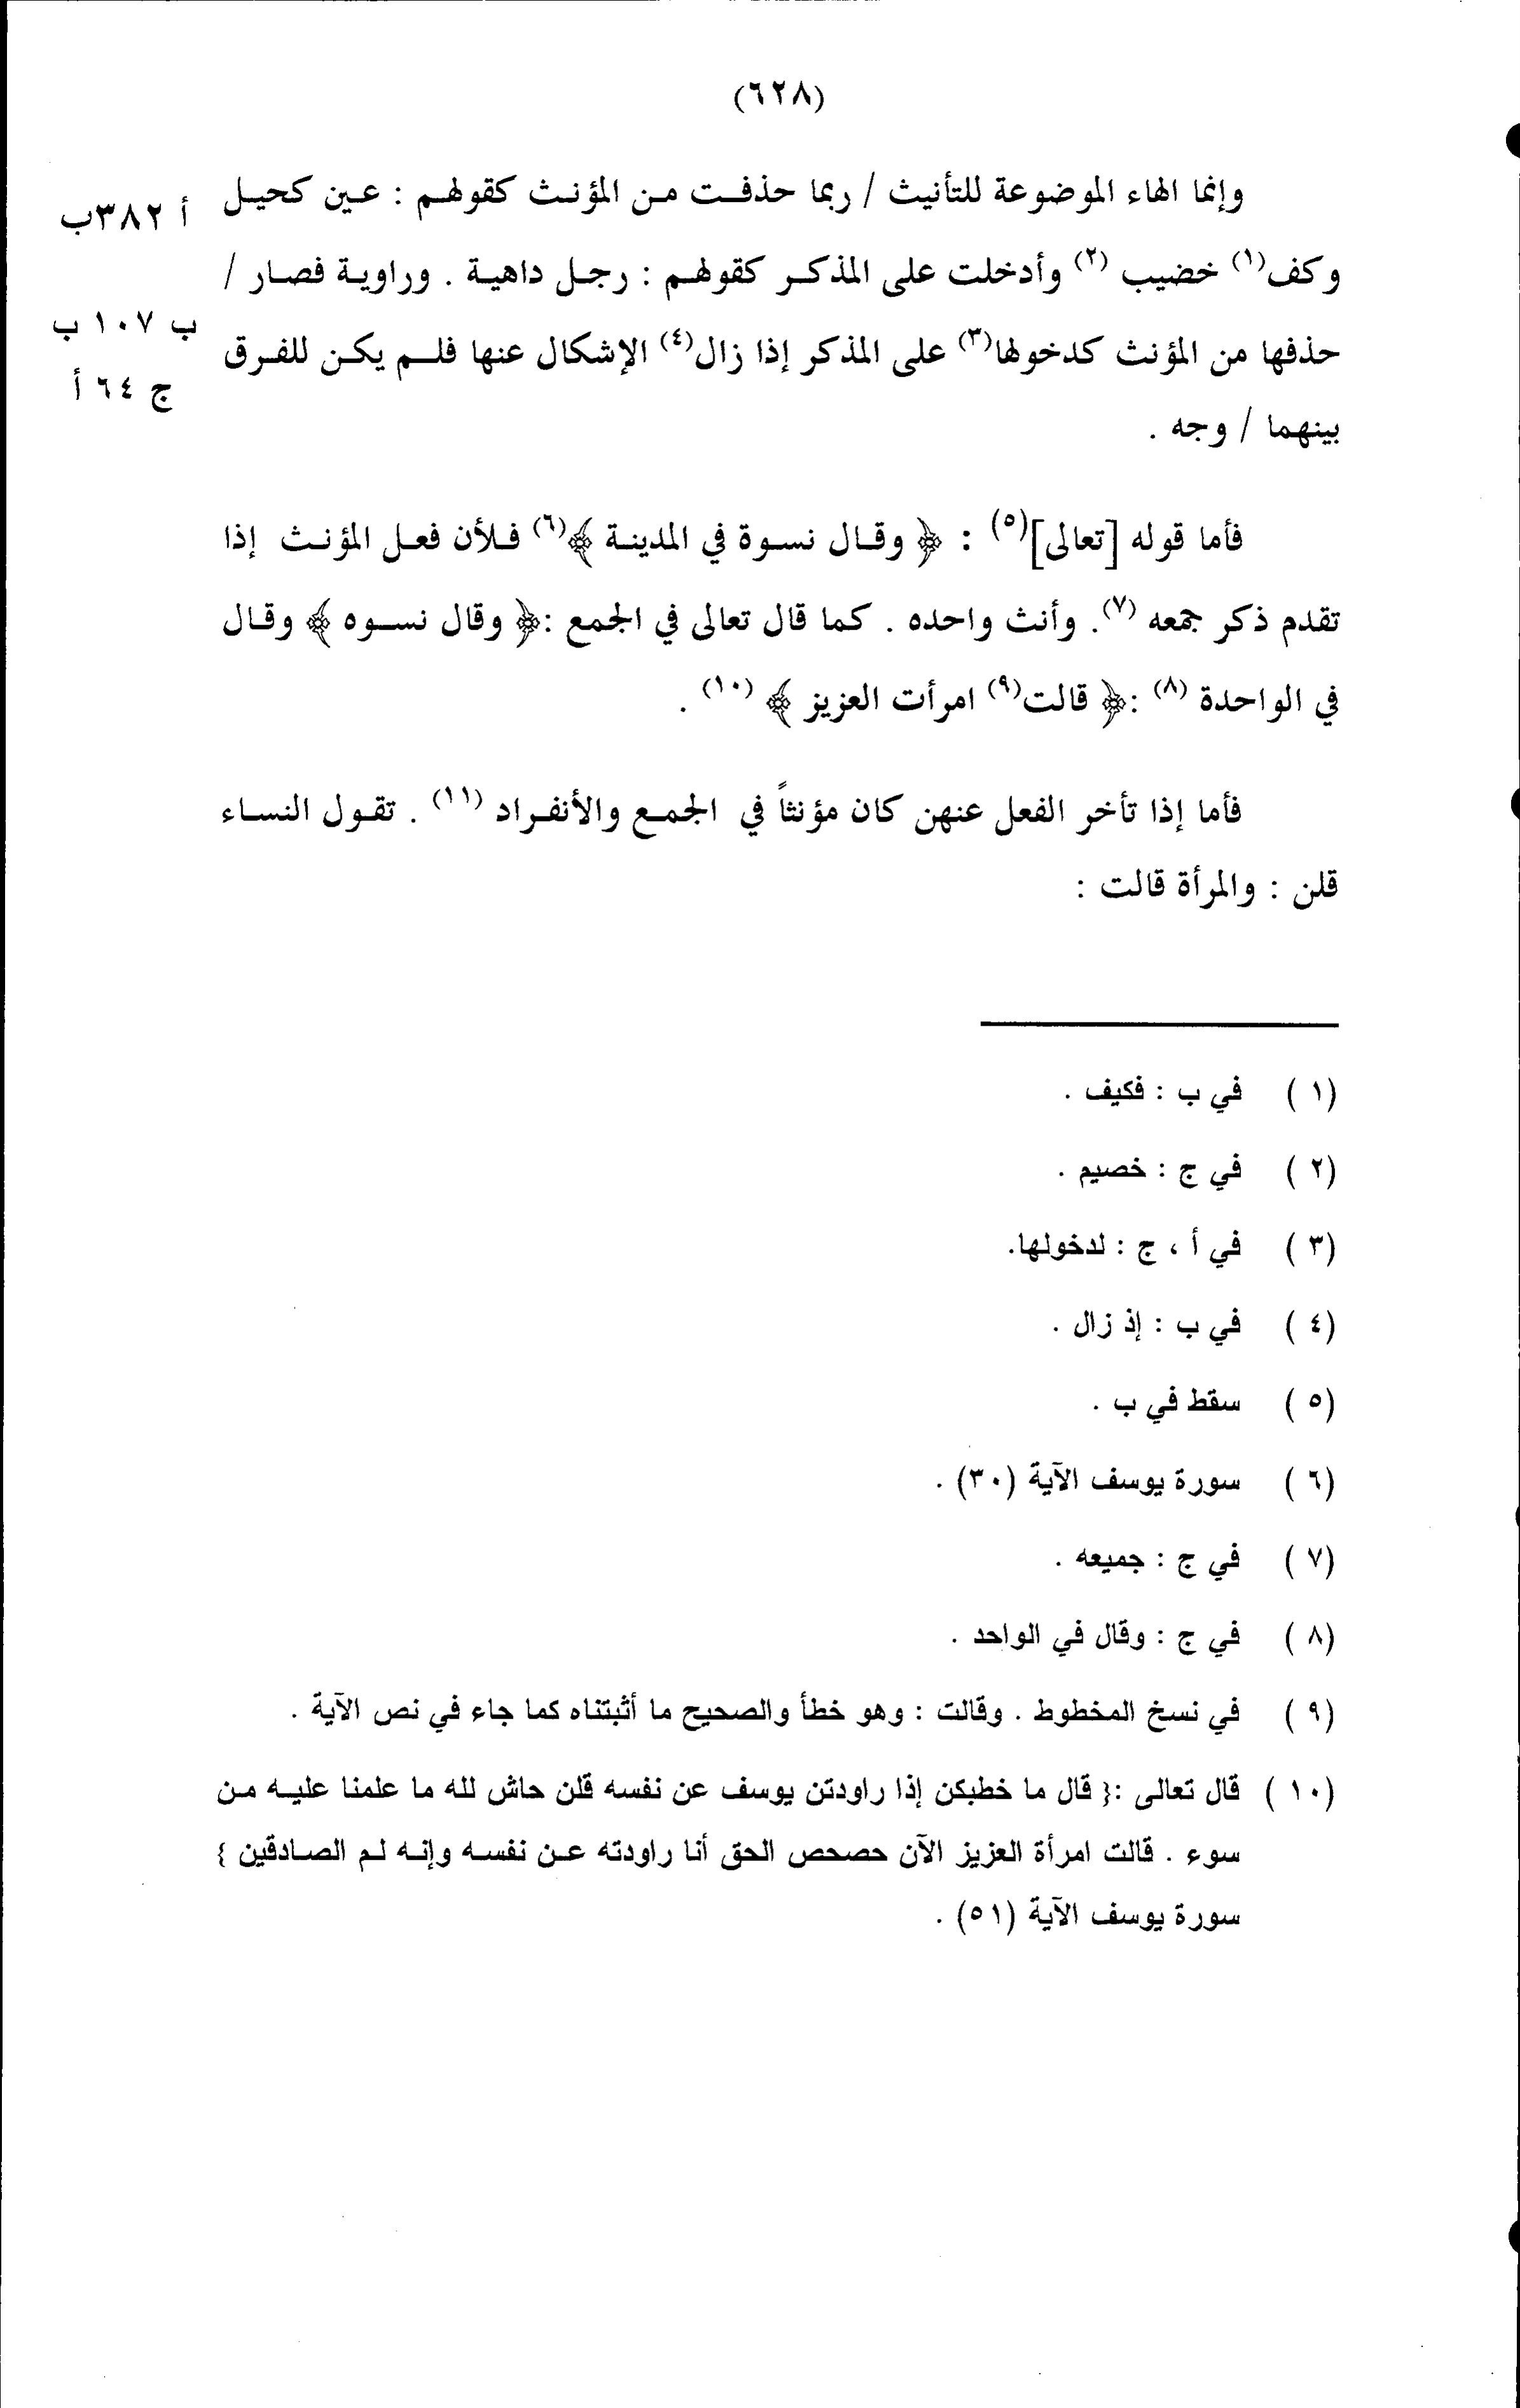 (٦٢٨)
وإنما الهاء الموضوعة للتأنيث / ربما حذفت من المؤنث كقولهم : عين كحيل
أ ٣٨٢ب
وكف(١) خضيب (٢) وأدخلت على المذكر كقولهم : رجل داهية . وراوية فصار /
ب ١٠٧ ب
حذفها من المؤنث كدخولها(٣) على المذكر إذا زال(٤) الإشكال عنها فلم يكن للفرق
ج ٦٤ أ
بينهما / وجه .
فأما قوله [تعالى](٥) : ﴿ وقال نسوة في المدينة ﴾(٦) فلأن فعل المؤنث إذا
تقدم ذكر جمعه (٧). وأنث واحده . كما قال تعالى في الجمع :﴿ وقال نسوه ﴾ وقال
في الواحدة (٨) :﴿ قالت(٩) امرأت العزيز ﴾ (١٠) .
فأما إذا تأخر الفعل عنهن كان مؤنثاً في الجمع والأنفراد (١١) . تقول النساء
قلن : والمرأة قالت :
(١) في ب : فكيف .
(٢) في ج : خصيم .
(٣) في أ ، ج : لدخولها.
(٤) في ب : إذ زال .
(٥) سقط في ب .
(٦) سورة يوسف الآية (٣٠) .
(٧) في ج : جميعه .
(٨) في ج : وقال في الواحد .
(٩) في نسخ المخطوط . وقالت : وهو خطأ والصحيح ما أثبتناه كما جاء في نص الآية .
(١٠) قال تعالى :{ قال ما خطبكن إذا راودتن يوسف عن نفسه قلن حاش لله ما علمنا عليه من
سوء . قالت امرأة العزيز الآن حصحص الحق أنا راودته عن نفسه وإنه لم الصادقين }
سورة يوسف الآية (٥١) .